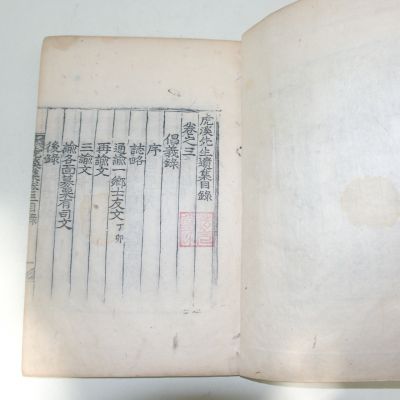 虎溪先生遺集目錄
卷之三
倡義錄
序
誌略
通諭一鄕士友文 丁卯
再諭文
三諭文
諭各面募粟有司文
後錄